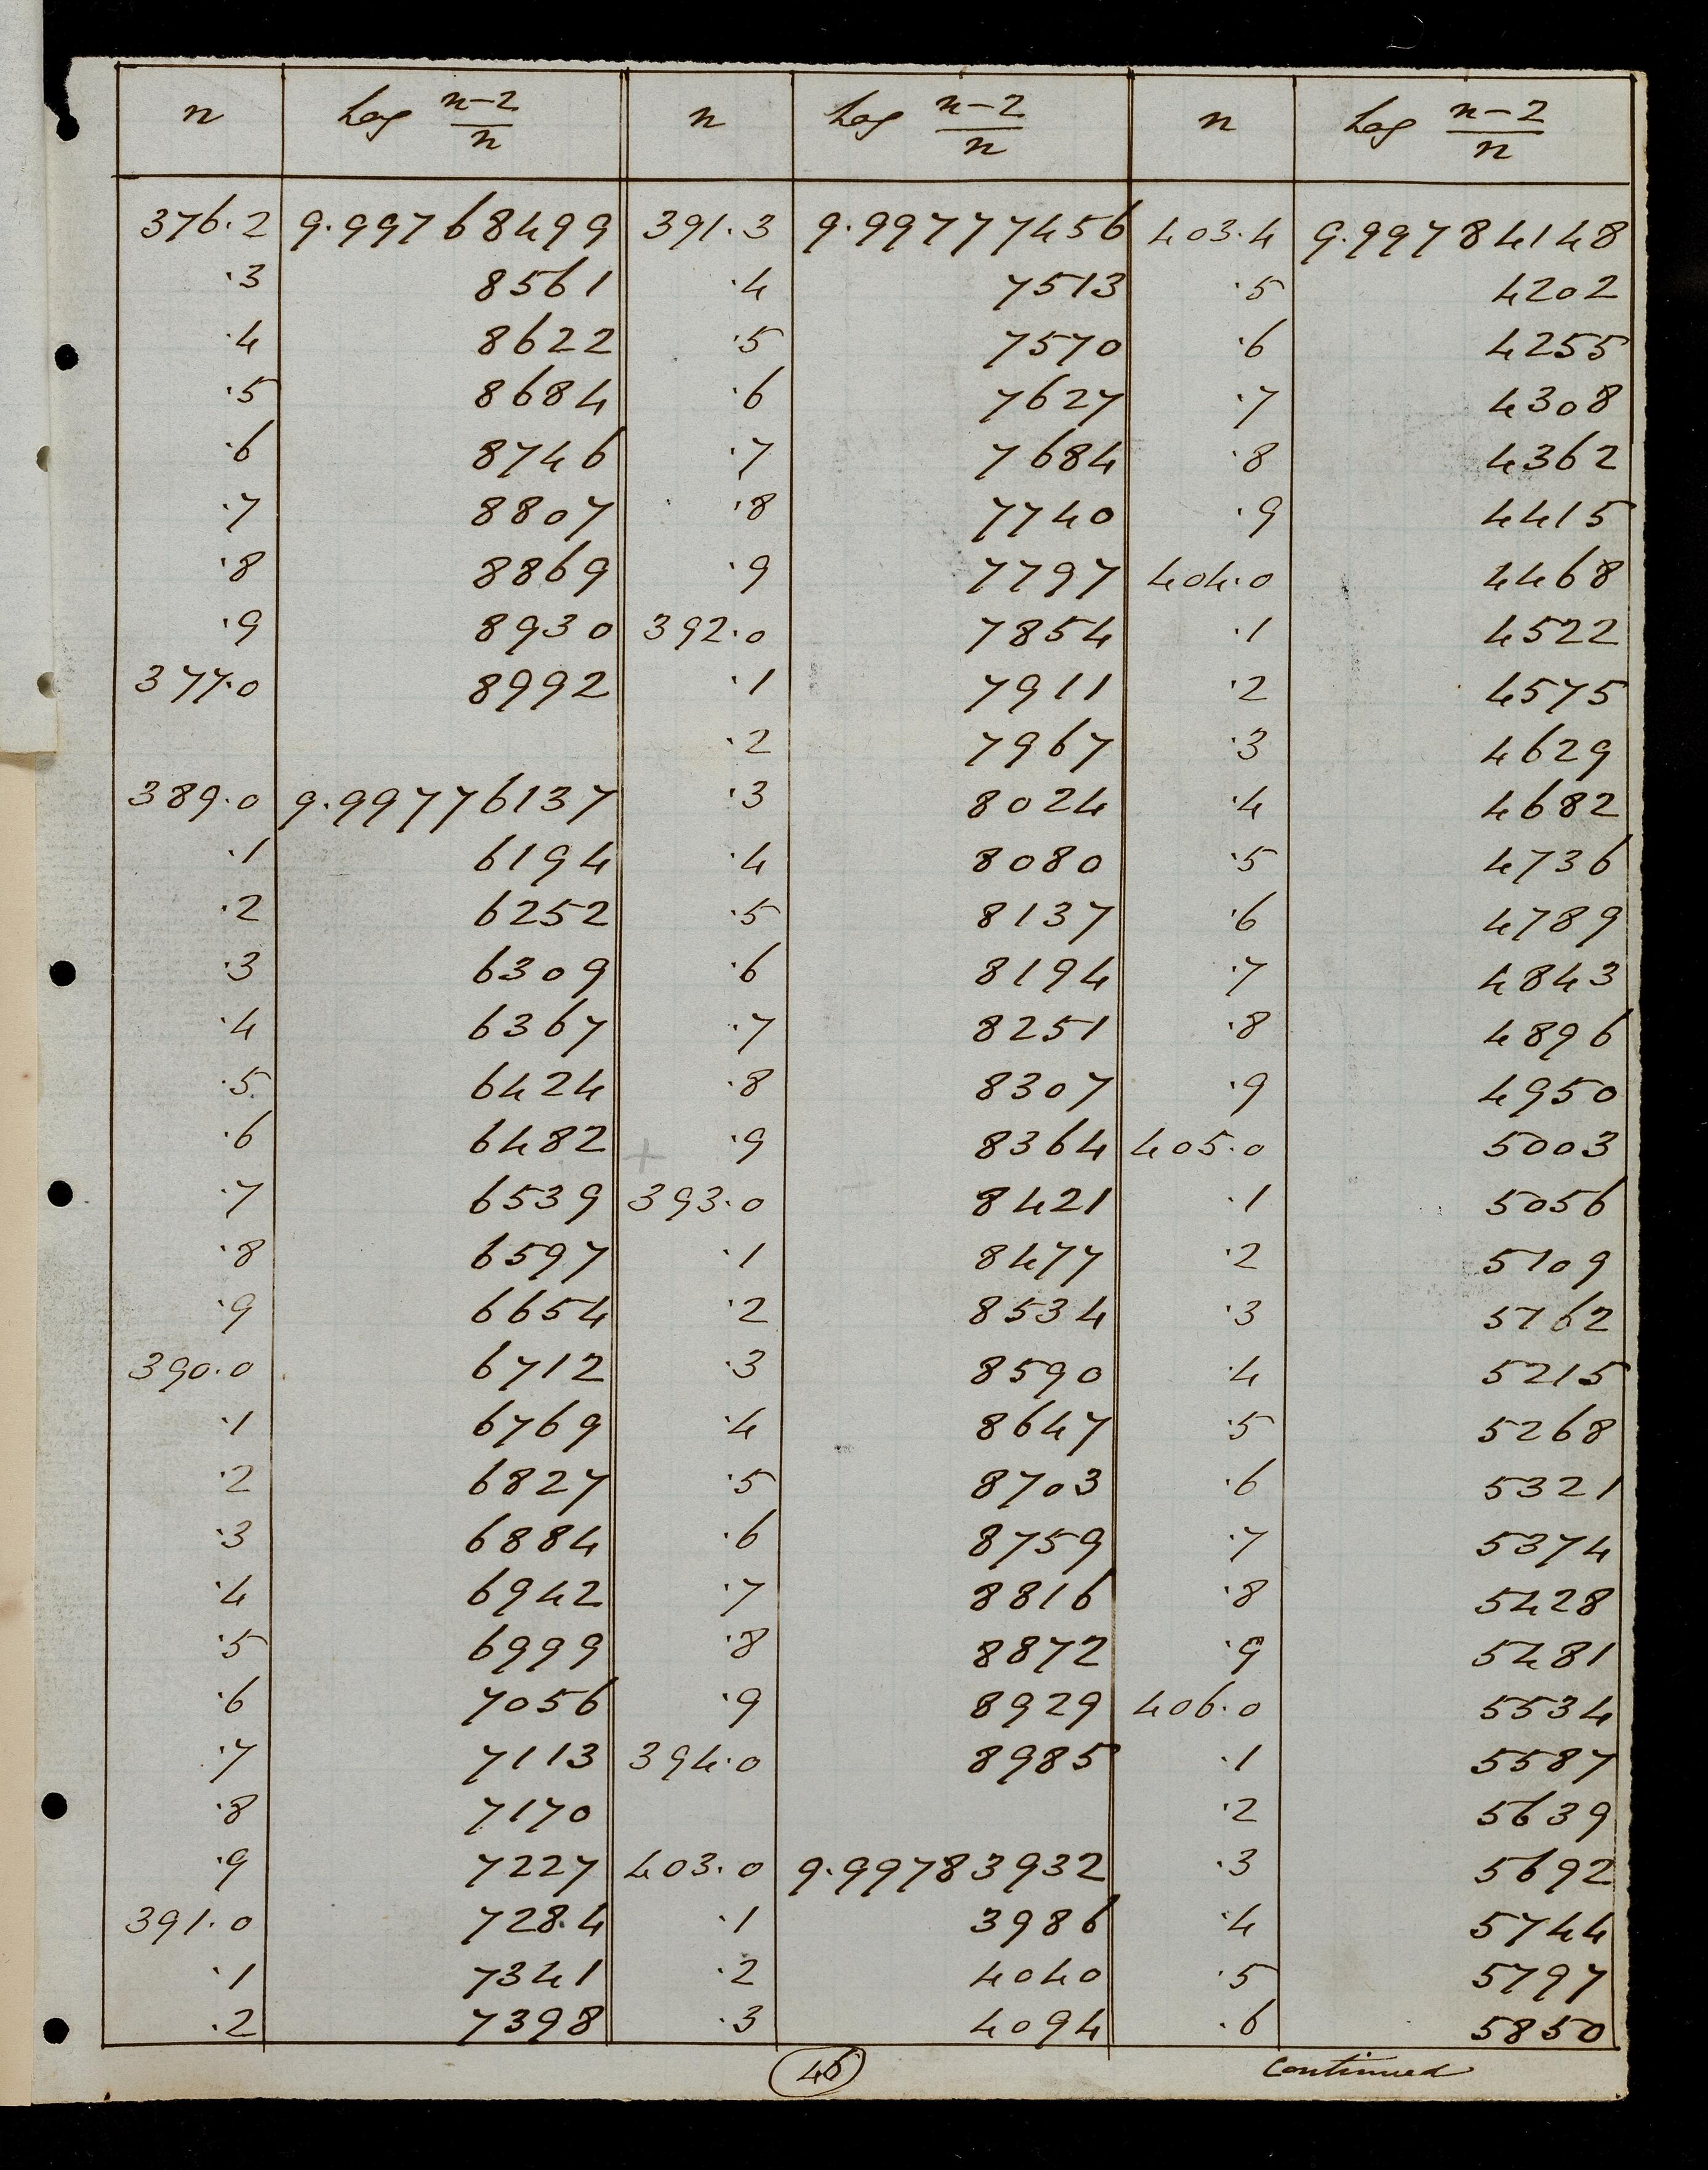 n Log n-2/n n Log n-2/n n Log n-2/n
376.2 9.99768499 391.3 9.99777456 403.4 9.99784148
.3 8561 .4 7513 .5 4202
.4 8622 .5 7570 .6 4255
.5 8684 .6 7627 .7 4308
.6 8746 .7 7684 .8 4362
.7 8807 .8 7740 .9 4415
.8 8869 .9 7797 404.0 4468
.9 8930 392.0 7854 .1 4522
377.0 8992 .1 7911 .2 4575
.2 7967 .3 4629
389.0 9.99776137 .3 8024 .4 4682
.1 6194 .4 8080 .5 4736
.2 6252 .5 8137 .6 4789
.3 6309 .6 8194 .7 4843
.4 6367 .7 8251 .8 4896
.5 6424 .8 8307 .9 4950
.6 6482 .9 8364 405.0 5003
.7 6539 393.0 8421 .1 5056
.8 6597 .1 8477 .2 5109
.9 6654 .2 8534 .3 5162
390.0 6712 .3 8590 .4 5215
.1 6769 .4 8647 .5 5268
.2 6827 .5 8703 .6 5321
.3 6884 .6 8759 .7 5374
.4 6942 .7 8816 .8 5428
.5 6999 .8 8872 .9 5481
.6 7056 .9 8929 406.0 5534
.7 7113 394.0 8985 .1 5587
.8 7170 .2 5639
.9 7227 403.0 9.99783932 .3 5692
391.0 7284 .1 3986 .4 5744
.1 7341 .2 4040 .5 5797
.2 7398 .3 4094 .6 5850
46 Continued